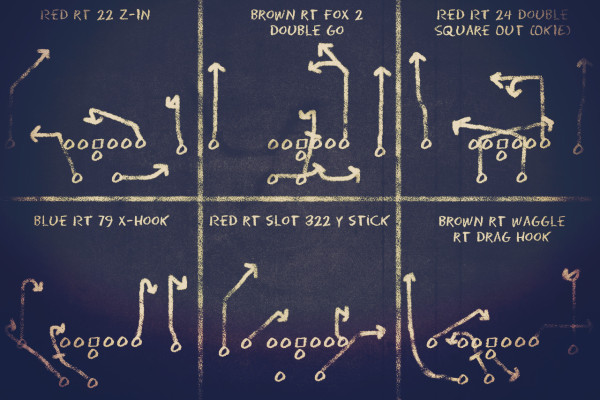 RED RT 22 Z-IN
BROWN RT FOX 2
DOUBLE GO
RED RT 24 DOUBLE
SQUARE OUT (OKIE)
BLUE RT 79 X-HOOK
RED RT SLOT 322 Y STICK
BROWN RT WAGGLE
RT DRAG HOOK